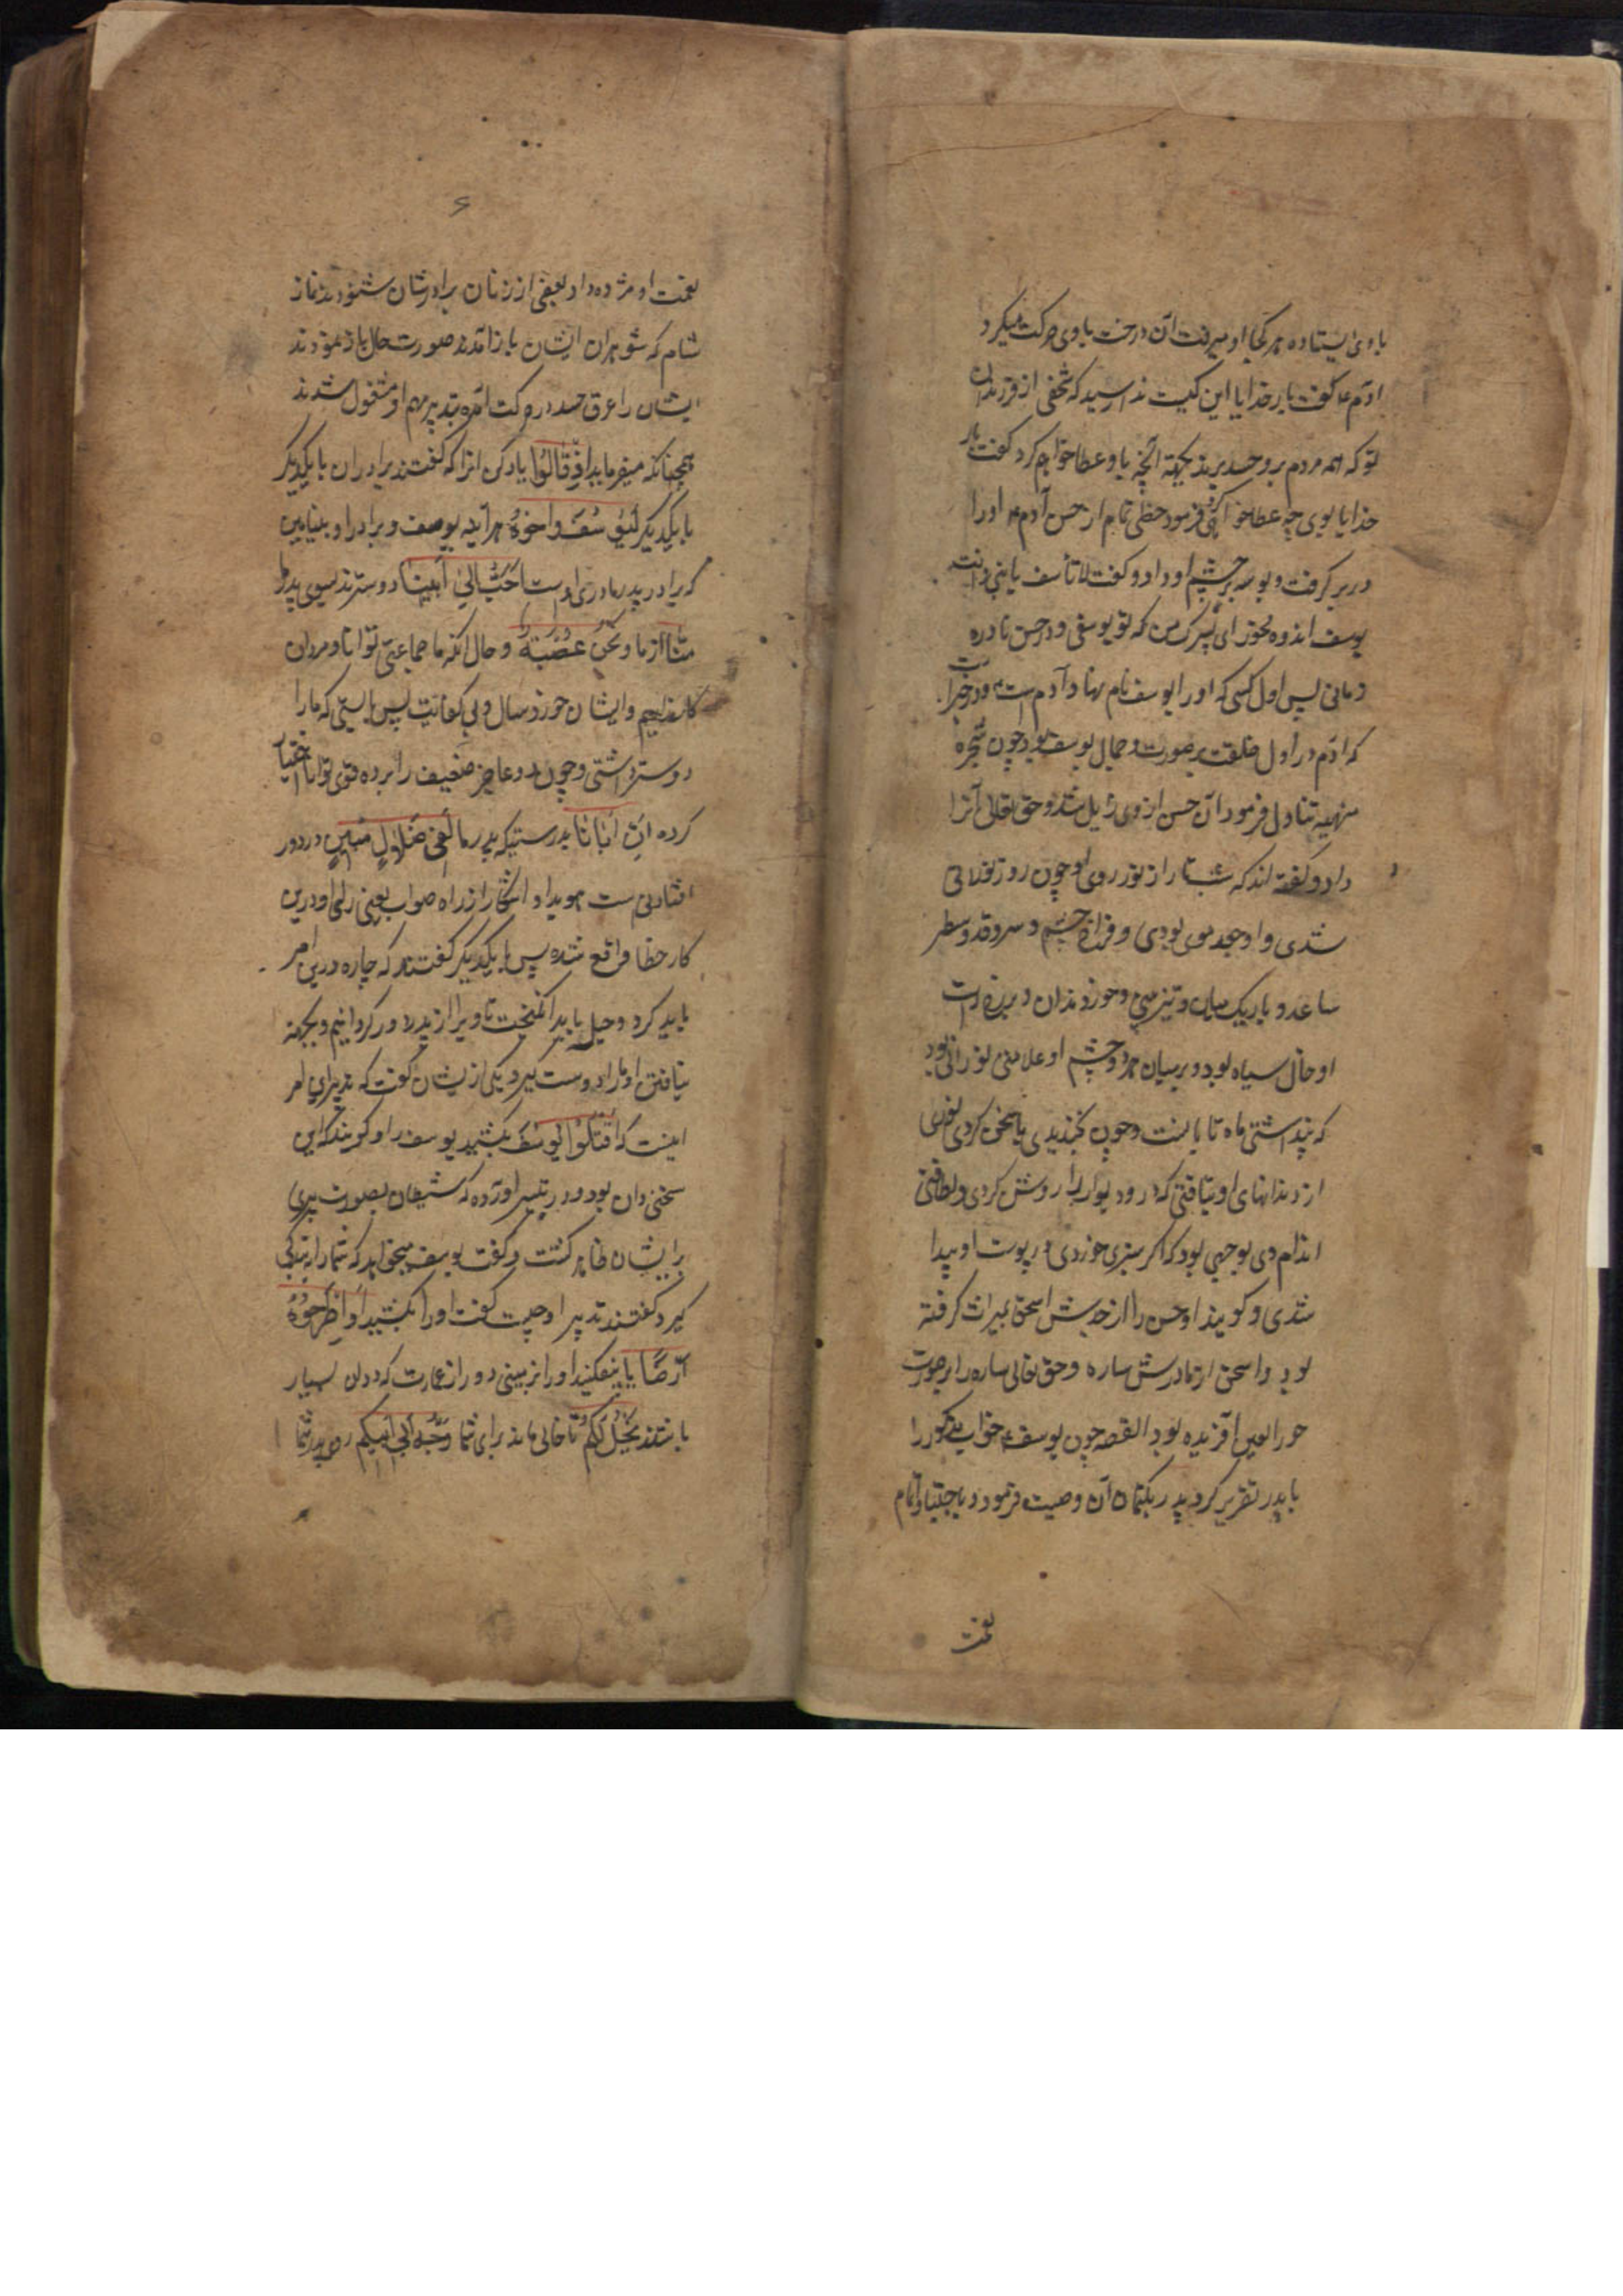 باوی ایستاده هر کجا او میرفت آن درخت با وی حرکت میکرد
آدم ع گفت بار خدایا این کیست ندا رسید که شخصی از فرزندان
تو که همه مردم برو حسد برند بجهة آنچه باو عطا خواهم کرد گفت بار
خدایا بوی چه عطا خواهی کرد فرمود حظی تمام از حسن آدم ع او را
در بر گرفت و بوسه بر چشم او داد و گفت لا تأسف یا بنی و انت
یوسف اندوه مخور ای پسرک من که تو یوسفی و در حسن نادره
زمانی پس اول کسی که او را یوسف نام نهاد آدم است و در خبر است
که آدم در اول خلقت بر صورت و جمال یوسف بود چون شجره
منهیه تناول فرمود آن حسن از وی زایل شد و حق تعالی آنرا
داد و گفته اند که شب تار از نور روی او چون روز نورانی
شدی و او جعد موی بودی و فراخ چشم و سرو قد و سطبر
ساعد و باریک میان و تیز بینی و خورد دندان و بر رخ راست
او خال سیاه بود و بر میان هر دو چشم او علامتی نورانی بود
که پنداشتی ماه تابانست و چون بخندیدی یا سخن کردی نوری
از دندانهای او بتافتی که در و دیوار را روشن کردی و لطافت
اندام وی بوجهی بود که اگر سبزی خوردی در پوست او پیدا
شدی و گویند او حسن را از جدش اسحق بمیراث گرفته
بود و اسحق از مادرش ساره و حق تعالی ساره را بر صورت
حور العین آفریده بود القصه چون یوسف ع خواب مذکور را
با پدر تقریر کرد پدر بکتمان آن وصیت فرمود و باجتبا و اتمام
نعمت
۶
نعمت او مژده داد بعضی از زنان برادرشان شنودند نماز
شام که شوهران ایشان باز آمدند صورت حال باز نمودند
ایشان را عرق حسد در حرکت آمده بتدبیر مهم او مشغول شدند
همچنانکه میفرماید اِذْ قَالُوا یاد کن انرا که گفتند برادران با یکدیگر
با یکدیگر لَیُوسُفُ وَ اَخُوهُ هر آینه یوسف و برادر او بنیامین
که برادر پدر مادری اوست اَحَبُّ اِلیٰ اَبِینَا دوسترند بسوی پدر ما
مِنَّا از ما وَ نَحْنُ عُصْبَةٌ و حال انکه ما جماعتی توانا و مردان
کارسازیم و ایشان خورد سال و بی کفایت پس بایستی که ما را
دوستر داشتی و چون دو عاجز ضعیف را بر ده قوی توانا اختیار
کرده اِنَّ اَبَانَا بدرستیکه پدر ما لَفِی ضَلَالٍ مُبِینٍ در دور
افتادنی ست هویدا و آشکار از راه صواب یعنی رای او درین
کار خطا واقع شده پس با یکدیگر گفتند که چاره درین امر
باید کرد و حیله باید انگیخت تا ویرا از پدر دور گردانیم و بجهة
نیافتن او ما را دوست گیرد یکی از یشان گفت که تدبیر این امر
اینست که اقْتُلُوا یُوسُفَ بکشید یوسف را و گویند که این
سخن دان بود و در تیسیر آورده که شیطان بصورت پیری
بر ایشان ظاهر گشت و گفت یوسف میخواهد که شما را ببندگی
گیرد گفتند تدبیر او چیست گفت او را بکشید اَوِ اطْرَحُوهُ
اَرْضًا یا بیفکنید او را بزمینی دور از عمارت که ددان بسیار
باشند یَخْلُ لَکُمْ تا خالی ماند برای شما وَجْهُ اَبِیکُمْ روی پدر شما